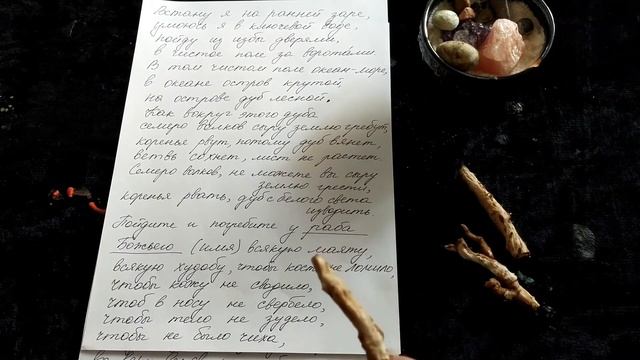 Встану я на ранней заре,
умоюсь я в ключевой воде.
Пойду из избы дверями,
в чистое поле за воротами.
В том чистом поле океан-море,
в океане остров крутой,
на острове дуб лесной.
Как вокруг этого дуба
семеро волков сыру землю гребут,
коренье рвут, потому дуб вянет,
ветвь сохнет, лист не растет.
Семеро волков, не можете вы сыру
землю грести,
коренья рвать, дуб с белого света
изводить
Пойдите и погребите у раба
Божьего (имя) всякую маяту,
всякую худобу, чтобы кости не ломило,
чтобы кожу не сводило,
чтоб в носу не свербело,
чтобы тело не зудело,
чтобы не было чиха,